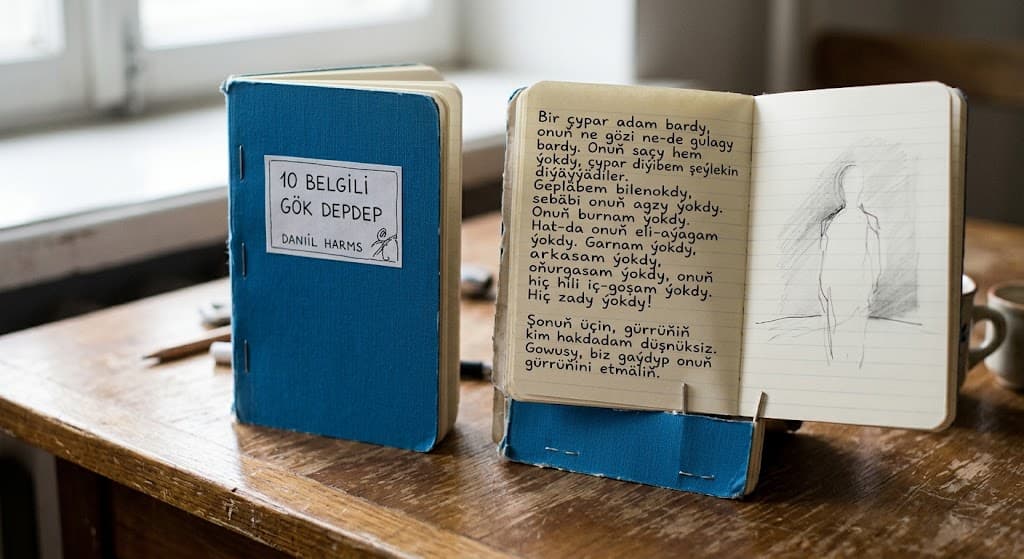 10 BELGILI
GÖK DEPDEP
DANIİL HARMS
Bir çypar adam bardy,
onuň ne gözi ne-de gulagy
bardy. Onuň saçy hem
ýokdy, çypar diýibem şeýlekin
diýäýýädiler.
Gepläbem bilenokdy,
sebäbi onuň agzy ýokdy.
Onuň burnam ýokdy.
Hat-da onuň eli-aýagam
ýokdy. Garnam ýokdy,
arkasam ýokdy,
oňurgasam ýokdy, onuň
hiç hili iç-goşam ýokdy.
Hiç zady ýokdy!
Şonuň üçin, gürrüňiň
kim hakdadam düşnüksiz.
Gowusy, biz gaýdyp onuň
gürrüňini etmäliň.